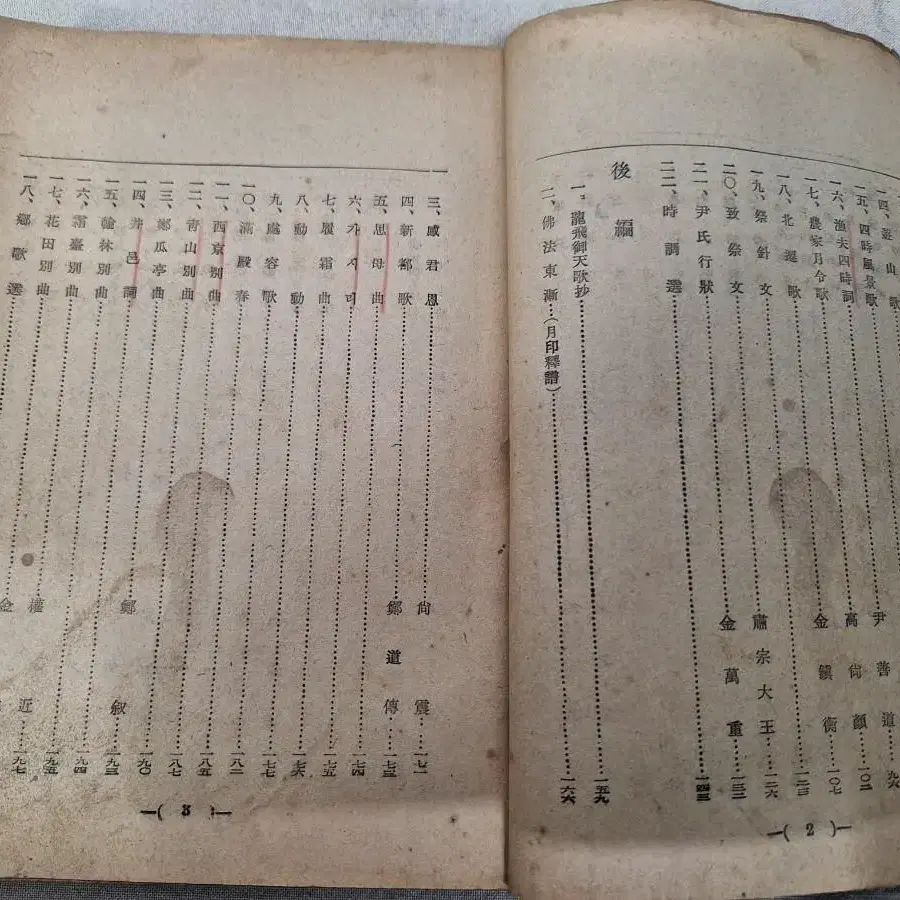 一四、遊山歌
一五、四時風景歌
一六、漁夫四時詞……尹善道……九六
一七、農家月令歌……高尙顔……一〇二
一八、北遷歌……金鎭衡……一〇七
一九、祭針文……一二三
二〇、致祭文……肅宗大王……一二六
二一、尹氏行狀……金萬重……一三二
二二、時調選……一四三
後編
一、龍飛御天歌抄……一五九
二、佛法東漸…(月印釋譜)……一六六
—( 2 )—
三、感君恩……尙震……一七一
四、新都歌……鄭道傳……一七三
五、思母曲……一七四
六、가시리……一七五
七、履霜曲……一七六
八、動動……一七七
九、處容歌……一八二
一〇、滿殿春……一八五
一一、西京別曲……一八七
一二、靑山別曲……一九〇
一三、鄭瓜亭曲……鄭叙……一九三
一四、井邑詞……一九四
一五、翰林別曲……一九五
一六、霜臺別曲……權近……一九七
一七、花田別曲……金
一八、鄕歌選
—( 3 )—